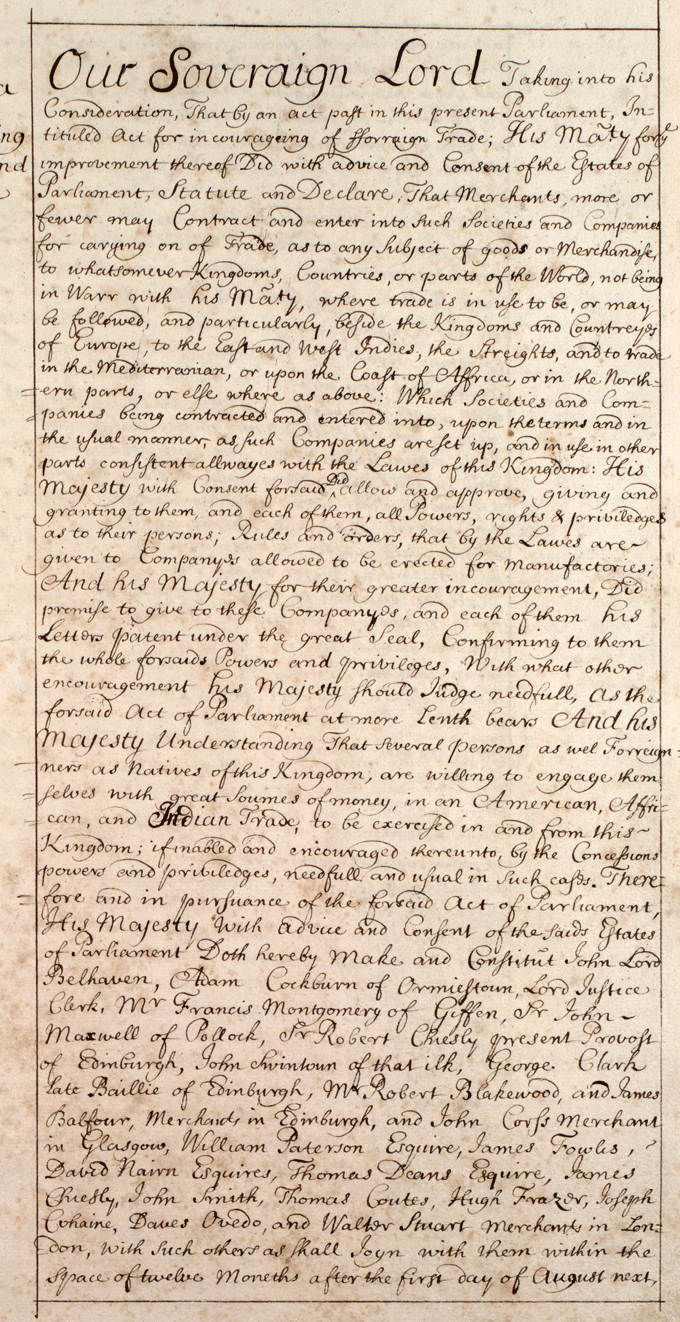 Our Soveraign Lord Taking into his
Consideration, That by an act past in this present Parliament, In-
tituled Act for incourageing of fforraign Trade; His Maty for ye
improvement thereof Did with advice and Consent of the Estates of
Parliament, Statute and Declare, That Merchants more or
fewer may Contract and enter into such Societies and Companies
for carying on of Trade, as to any Subject of goods or Merchandise,
to whatsomever Kingdoms, Countries, or parts of the World, not being
in Warr with his Maty, where trade is in use to be, or may
be followed, and particularly, beside the Kingdoms and Countreyes
of Europe, to the East and West Indies, the Streights, and to trade
in the Mediterranian, or upon the Coast of Affrica, or in the North-
ern parts, or else where as above: Which Societies and Com=
panies being contracted and entered into, upon the terms and in
the usual manner, as such Companies are set up, and in use in other
parts consistent allwayes with the Lawes of this Kingdom: His
Majesty with Consent forsaid Did allow and approve, giving and
granting to them, and each of them, all Powers, rights & priviledges
as to their persons; Rules and orders, that by the Lawes are
given to Companyes allowed to be erected for Manufactories;
And his Majesty for their greater incouragement, Did
promise to give to these Companyes, and each of them his
Letters patent under the great Seal, Confirming to them
the whole forsaids Powers and privileges, With what other
encouragement his Majesty should Judge needfull, as the
forsaid Act of Parliament at more Lenth bears And his
Majesty Understanding That several persons as wel Forreign-
ners as Natives of this Kingdom, are willing to engage them
selves with great Soumes of money, in an American, Affri=
can, and Indian Trade, to be exercised in and from this
Kingdom; if inabled and encouraged thereunto, by the Concessions
powers and priviledges, needfull and usual in such cases. There=
fore and in pursuance of the forsaid Act of Parliament,
His Majesty With advice and Consent of the saids Estates
of Parliament Doth hereby Make and Constitut John Lord
Belhaven, Adam Cockburn of Ormiestoun, Lord Justice
Clerk, Mr Francis Montgomery of Giffen, Sr John
Maxwell of Pollock, Sr Robert Chiesly present Provost
of Edinburgh, John Swintoun of that ilk, George Clark
late Baillie of Edinburgh, Mr Robert Blakewood, and James
Balfour, Merchants in Edinburgh, and John Corss Merchant
in Glasgow, William Paterson Esquire, James Fowlis,
David Nairn Esquires, Thomas Deans Esquire, James
Chiesly, John Smith, Thomas Coutes, Hugh Frazer, Joseph
Cohaine, Daves Ovedo, and Walter Stuart Merchants in Lon-
don, with such others as shall Joyn with them within the
space of twelve Moneths after the first day of August next,